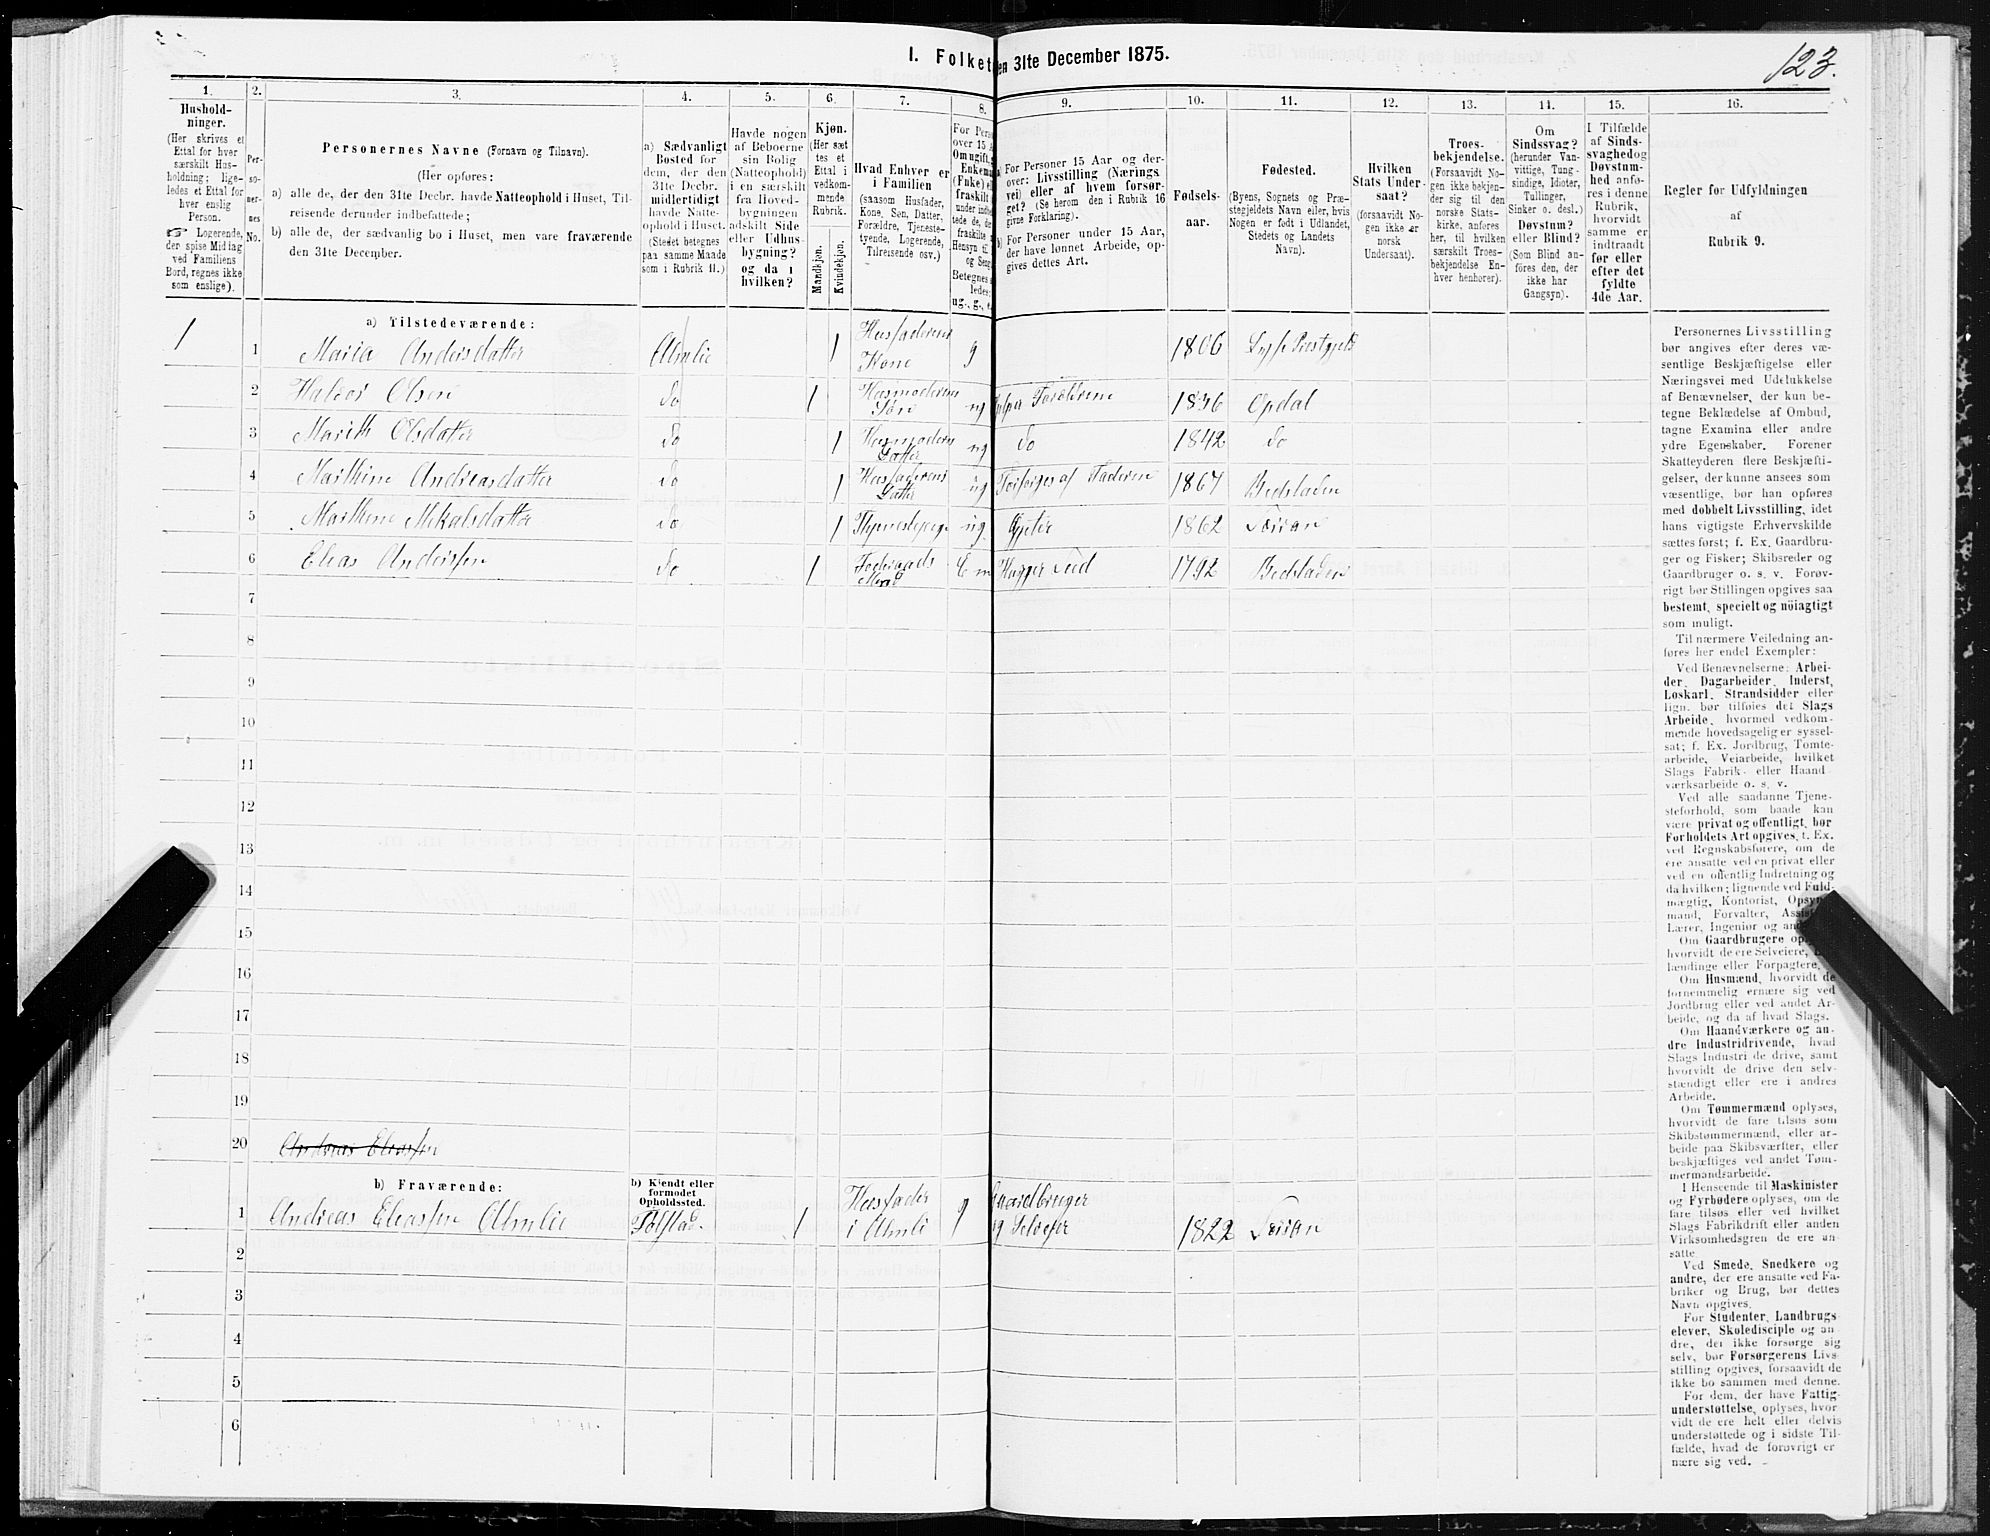 123.
I. Folket en 31te December 1875.
1. 2. 3. 4. 5. 6. 7. 8. 9. 10. 11. 12. 13. 14. 15. 16.
Hushold-
ninger.
(Her skrives et
Ettal for hver
særskilt Hus-
holdning; lige-
ledes et Ettal for
hver enslig
Person.
☞ Logerende,
der spise Middag
ved Familiens
Bord, regnes ikke
som enslige).
Per-
so-
ner-
nes
No.
Personernes Navne (Fornavn og Tilnavn).
(Her opføres:
a) alle de, der den 31te Decbr. havde Natteophold i Huset, Til-
reisende derunder indbefattede;
b) alle de, der sædvanlig bo i Huset, men vare fraværende
den 31te December.
a) Sædvanligt
Bosted for
dem, der den
31te Decbr.
midlertidigt
havde Natte-
ophold i Huset.
(Stedet betegnes
paa samme Maade
som i Rubrik 11.)
Havde nogen
af Beboerne
sin Bolig
(Natteophold)
i en særskilt
fra Hoved-
bygningen
adskilt Side
eller Udhus-
bygning?
og da i
hvilken?
Kjøn.
(Her sæt
tes et
Ettal i
vedkom-
mende
Rubrik.
Mandkjøn.
Kvindekjøn.
Hvad Enhver er
i Familien
(saasom Husfader,
Kone, Søn, Datter,
Forældre, Tjeneste-
tyende, Logerende,
Tilreisende osv.)
For Perso
over 15 A
Om ugift,
Enkema
(Enke) e
fraskilt
under indbe
tede de, de
fraskilte
Hensyn til
og Seng
Betegnes s
ledes:
ug., g., e.
For Personer 15 Aar og der-
over: Livsstilling (Nærings
vei) eller af hvem forsør-
get? (Se herom den i Rubrik 16
givne Forklaring).
b) For Personer under 15 Aar,
der have lønnet Arbeide, op-
gives dettes Art.
Fødsels-
aar.
Fødested.
(Byens, Sognets og Præ-
stegjeldets Navn eller, hvis
Nogen er født i Udlandet,
Stedets og Landets
Navn).
Hvilken
Stats Under-
saat?
(forsaavidt No-
gen ikke er
norsk
Undersaat).
Troes-
bekjendelse.
(Forsaavidt No-
gen ikke bekjen-
der sig til den
norske Stats-
kirke, anføres
her, til hvilken
særskilt Troes-
bekjendelse En-
hver henhører).
Om
Sindssvag?
(herunder Van-
vittige, Tung-
sindige, Idioter,
Tullinger,
Sinker o. desl.)
Døvstum?
eller Blind?
(Som Blind an-
føres den, der
ikke har
Gangsyn).
I Tilfælde
af Sinds-
svaghed og
Døvstum-
hed anfø-
res i denne
Rubrik,
hvorvidt
samme er
indtraadt
før eller
efter det
fyldte
4de Aar.
Regler for Udfyldningen
af
Rubrik 9.
a) Tilstedeværende:
1 1 Maria Andersdatter Almlie 1 Husfaderens Kone g 1806
2 Haldor Olsen do 1 Husmoderens Søn ug Forældrene 1836 Opdal
3 Marith Olsdatter do 1 Husmoderens Datter ug do 1842 do
4 Marthine Andreasdatter do 1 Husfaderens Datter ug Forsørges af Faderen 1867 Bedstaden
5 Marthine Mikalsdatter do 1 ug Gjeter 1862
6 Eleas Anderssen do 1 Foderaads Mand Em Hugger Ved 1792 Bedstaden
7
8
9
10
11
12
13
14
15
16
17
18
19
20 Andreas Eleassen
b) Fraværende:
b) Kjendt eller
formodet
Opholdssted.
1 Andreas Eleassen Almlie 1 Husfader i Almli g Gaardbruger og Selveier 1822
2
3
4
5
6
Personernes Livsstilling
bør angives efter deres væ-
sentlige Beskjæftigelse eller
Næringsvei med Udelukkelse
af Benævnelser, der kun be-
tegne Beklædelse af Ombud,
tagne Examina eller andre
ydre Egenskaber. Forener
Skatteyderen flere Beskjæfti-
gelser, der kunne ansees som
væsentlige, bør han opføres
med dobbelt Livsstilling, idet
hans vigtigste Erhvervskilde
sættes først; f. Ex. Gaardbru-
ger og Fisker; Skibsreder og
Gaardbruger o. s. v. Forøv-
rigt bør Stillingen opgives saa
bestemt, specielt og nöiagtigt
som muligt.
Til nærmere Veiledning an-
føres her endel Exempler:
Ved Benævnelserne: Arbei-
der, Dagarbeider, Inderst,
Løskarl, Strandsidder eller
lign. bør tilføies det Slags
Arbeide, hvormed vedkom-
mende hovedsagelig er syssel-
sat; f. Ex. Jordbrug, Tomte-
arbeide, Veiarbeide, hvilket
Slags Fabrik- eller Haand-
værksarbeide o. s. v.
Ved alle saadanne Tjene-
steforhold, som baade kan
være privat og offentligt, bør
Forholdets Art opgives, t. Ex.
ved Regnskabsførere, om de
ere ansatte ved en privat eller
ved en offentlig Indretning og
da hvilken; lignende ved Fuld-
mægtig, Kontorist, Opsyns-
mand, Forvalter, Assist
Lærer, Ingeniør og an
Om Gaardbrugere op
hvorvidt de ere Selveiere,
lændinge eller Forpagtere,
Om Husmænd, hvorvidt de
fornemmelig ernære sig ved
Jordbrug eller ved andet Ar-
beide, og da af hvad Slags.
Om Haandværkere og an-
dre Industridrivende, hvad
Slags Industri de drive, samt
hvorvidt de drive den selv-
stændigt eller ere i andres
Arbeide.
Om Tømmermænd oplyses,
hvorvidt de fare tilsøs som
Skibstømmermænd, eller ar-
beide paa Skibsværfter, eller
beskjæftiges ved andet Tøm-
mermandsarbeide.
I Henseende til Maskinister
og Fyrbødere oplyses, om de
fare tilsøs eller ved hvilket
Slags Fabrikdrift eller anden
Virksomhedsgren de ere an-
satte.
Ved Smede, Snedkere og
andre, der ere ansatte ved Fa-
briker og Brug, bør dettes
Navn opgives.
For Studenter, Landbrugs-
elever, Skoledisciple og an-
dre, der ikke forsørge sig
selv, bør Forsørgerens Livs-
stilling opgives, forsaavidt de
ikke bo sammen med denne.
For dem, der have Fattig-
understøttelse, oplyses, hvor-
vidt de ere helt eller delvis
understøttede og i sidste Til-
fælde, hvad de forøvrigt er
nære sig ved.